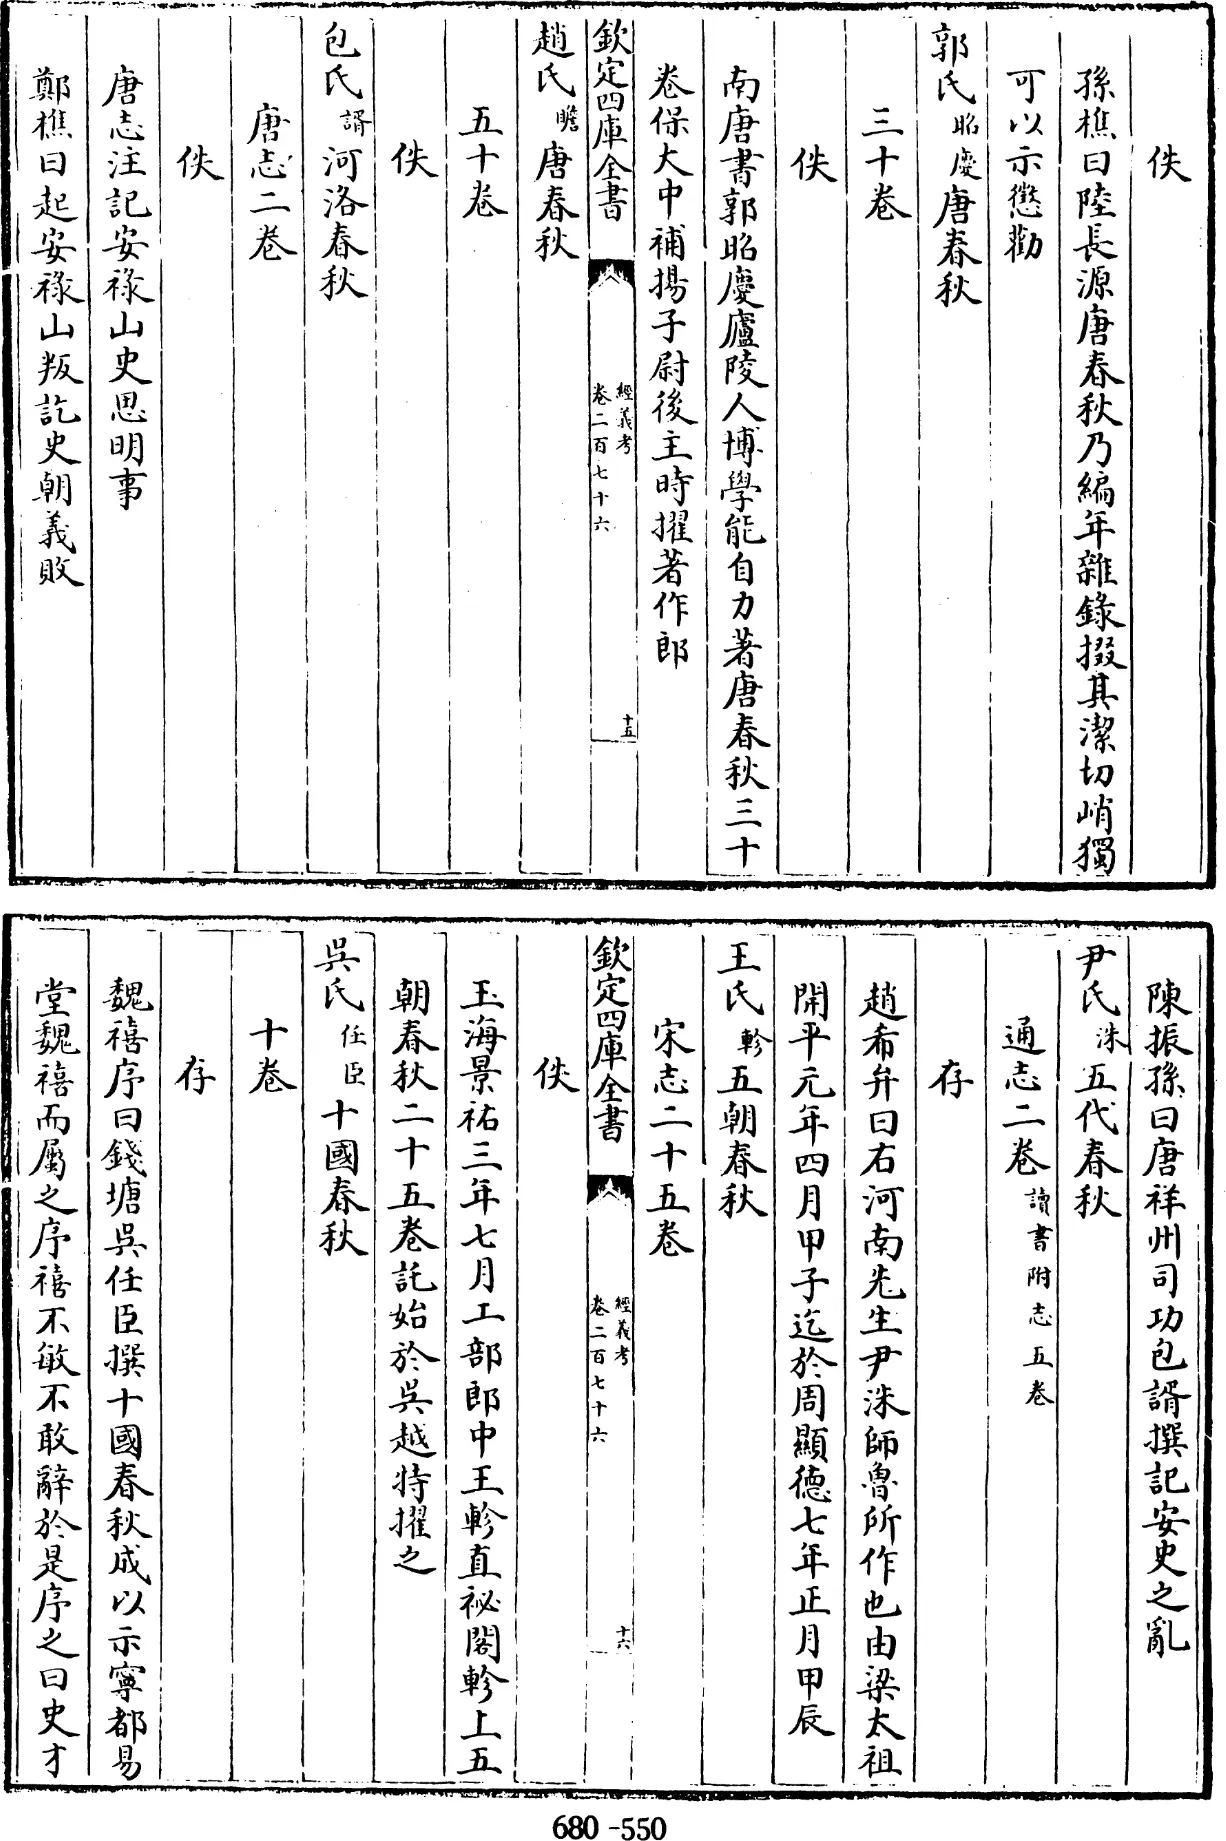 佚
孫樵曰陸長源唐春秋乃編年雜錄掇其潔切峭獨
可以示懲勸
郭氏昭慶唐春秋
三十卷
佚
南唐書郭昭慶廬陵人博學能自力著唐春秋三十
卷保大中補揚子尉後主時擢著作郎
欽定四庫全書
經義考
卷二百七十六
十五
趙氏瞻唐春秋
五十卷
佚
包氏諝河洛春秋
唐志二卷
佚
唐志注記安祿山史思明事
鄭樵曰起安祿山叛訖史朝義敗
陳振孫曰唐祥州司功包諝撰記安史之亂
尹氏洙五代春秋
通志二卷讀書附志五卷
存
趙希弁曰右河南先生尹洙師魯所作也由梁太祖
開平元年四月甲子迄於周顯德七年正月甲辰
王氏軫五朝春秋
宋志二十五卷
欽定四庫全書
經義考
卷二百七十六
十六
佚
玉海景祐三年七月工部郎中王軫直祕閣軫上五
朝春秋二十五卷託始於吳越特擢之
吳氏任臣十國春秋
十卷
存
魏禧序曰錢塘吳任臣撰十國春秋成以示寧都易
堂魏禧而屬之序禧不敏不敢辭於是序之曰史才
680-550